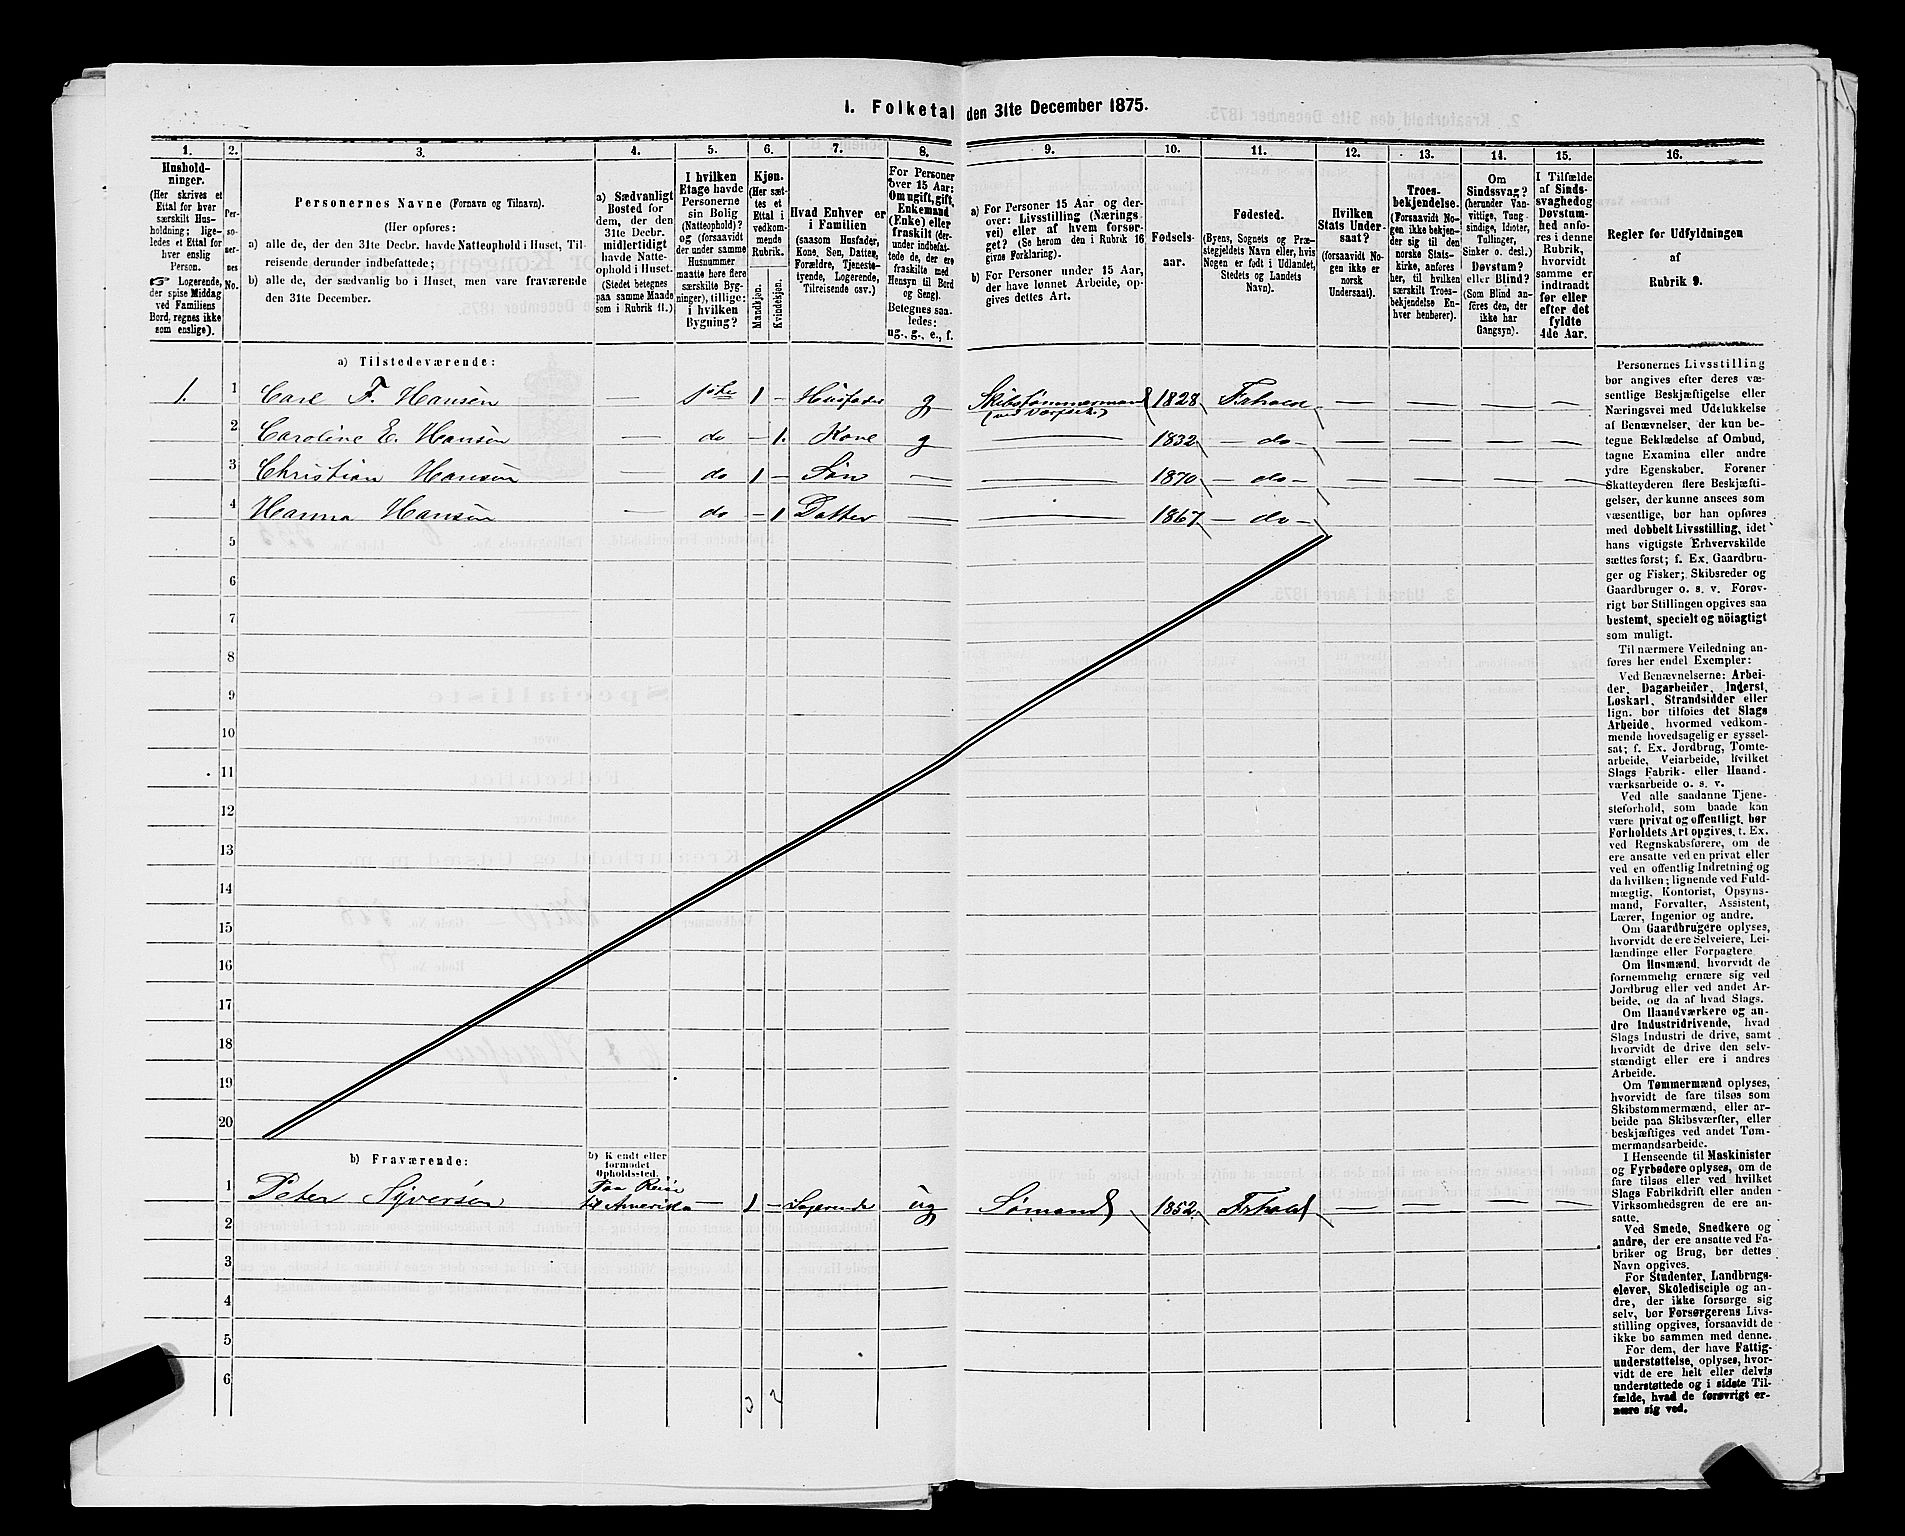 1. Folketal den 31te December 1875.
1. 2. 3. 4. 5. 6. 7. 8. 9. 10. 11. 12. 13. 14. 15. 16.
Hushold-
ninger.
(Her skrives et
Ettal for hver
særskilt Hus-
holdning; lige-
ledes et Ettal for
hver enslig
Person.
☞ Logerende,
der spise Middag
ved Familiens
Bord, regnes ikke
som enslige).
Per-
so-
ner-
nes
No.
Personernes Navne (Fornavn og Tilnavn).
(Her opføres:
a) alle de, der den 31te Decbr. havde Natteophold i Huset, Til-
reisende derunder indbefattede;
b) alle de, der sædvanlig bo i Huset, men vare fraværende
den 31te December.
a) Sædvanligt
Bosted for
dem, der den
31te Decbr.
midlertidigt
havde Natte-
ophold i Huset.
(Stedet betegnes
paa samme Maade
som i Rubrik 11.)
I hvilken
Etage havde
Personerne
sin Bolig
(Natteophold)?
og (forsaavidt
der under samme
Husnummer
maatte høre flere
særskilte Byg-
ninger), tillige:
i hvilken
Bygning?
Kjøn.
(Her sæt-
tes et
Ettal i
vedkom-
mende
Rubrik.
Mandkjøn.
Kvindekjøn.
Hvad Enhver er
i Familien
(saasom Husfader,
Kone, Søn, Datter,
Forældre, Tjeneste-
tyende, Logerende,
Tilreisende osv.)
For Personer
over 15 Aar:
Om ugift, gift,
Enkemand
(Enke) eller
fraskilt (der-
under indbefat-
tede de, der ere
fraskilte med
Hensyn til Bord
og Seng).
Betegnes saa-
ledes:
ug., g., e., f.
a) For Personer 15 Aar og der-
over: Livsstilling (Nærings-
vei) eller af hvem forsør-
get? (Se herom den i Rubrik 16
givne Forklaring).
b) For Personer under 15 Aar,
der have lønnet Arbeide, op-
gives dettes Art.
Fødsels-
aar.
Fødested.
(Byens, Sognets og Præ-
stegjeldets Navn eller, hvis
Nogen er født i Udlandet,
Stedets og Landets
Navn).
Hvilken
Stats Under-
saat?
(forsaavidt No-
gen ikke er
norsk
Undersaat).
Troes-
bekjendelse.
(Forsaavidt No-
gen ikke bekjen-
der sig til den
norske Stats-
kirke, anføres
her, til hvilken
særskilt Troes-
bekjendelse En-
hver henhører).
Om
Sindssvag?
(herunder Van-
vittige, Tung-
sindige, Idioter,
Tullinger,
Sinker o. desl.)
Døvstum?
eller Blind?
(Som Blind an-
føres den, der
ikke har
Gangsyn).
I Tilfælde
af Sinds-
svaghed og
Døvstum-
hed anfø-
res i denne
Rubrik,
hvorvidt
samme er
indtraadt
før eller
efter det
fyldte
4de Aar.
Regler for Udfyldningen
af
Rubrik 9.
a) Tilstedeværende:
1. 1 Carl F. Hansen 1ste 1 – Husfader g Skibstømmermand 1828 Frhald — — — —
2 Caroline E. Hansen — do – 1. Kone g — 1832 – do – — — — —
3 Christian Hansen — do 1 – Søn — — 1870 – do – — — — —
4 Hanna Hansen — do – 1 Datter — — 1867 – do –
5
6
7
8
9
10
11
12
13
14
15
16
17
18
19
20
b) Fraværende:
b) Kjendt eller
formodet
Opholdssted.
1 Peter Syversen Paa Reise
til Amerika — 1 – Logerende ug Sømand 1852 Frhald — — —
2
3
4
5
6
Personernes Livsstilling
bør angives efter deres væ-
sentlige Beskjæftigelse eller
Næringsvei med Udelukkelse
af Benævnelser, der kun be-
tegne Beklædelse af Ombud,
tagne Examina eller andre
ydre Egenskaber. Forener
Skatteyderen flere Beskjæfti-
gelser, der kunne ansees som
væsentlige, bør han opføres
med dobbelt Livsstilling, idet
hans vigtigste Erhvervskilde
sættes først; f. Ex. Gaardbru-
ger og Fisker; Skibsreder og
Gaardbruger o. s. v. Forøv-
rigt bør Stillingen opgives saa
bestemt, specielt og nöiagtigt
som muligt.
Til nærmere Veiledning an-
føres her endel Exempler:
Ved Benævnelserne: Arbei-
der, Dagarbeider, Inderst,
Løskarl, Strandsidder eller
lign. bør tilføies det Slags
Arbeide, hvormed vedkom-
mende hovedsagelig er syssel-
sat; f. Ex. Jordbrug, Tomte-
arbeide, Veiarbeide, hvilket
Slags Fabrik- eller Haand-
værksarbeide o. s. v.
Ved alle saadanne Tjene-
steforhold, som baade kan
være privat og offentligt, bør
Forholdets Art opgives, t. Ex.
ved Regnskabsførere, om de
ere ansatte ved en privat eller
ved en offentlig Indretning og
da hvilken; lignende ved Fuld-
mægtig, Kontorist, Opsyns-
mand, Forvalter, Assistent,
Lærer, Ingeniør og andre.
Om Gaardbrugere oplyses,
hvorvidt de ere Selveiere, Lei-
lændinge eller Forpagtere
Om Husmænd, hvorvidt de
fornemmelig ernære sig ved
Jordbrug eller ved andet Ar-
beide, og da af hvad Slags.
Om Haandværkere og an-
dre Industridrivende, hvad
Slags Industri de drive, samt
hvorvidt de drive den selv-
stændigt eller ere i andres
Arbeide.
Om Tømmermænd oplyses,
hvorvidt de fare tilsøs som
Skibstømmermænd, eller ar-
beide paa Skibsværfter, eller
beskjæftiges ved andet Tøm-
mermandsarbeide.
I Henseende til Maskinister
og Fyrbødere oplyses, om de
fare tilsøs eller ved hvilket
Slags Fabrikdrift eller anden
Virksomhedsgren de ere an-
satte.
Ved Smede, Snedkere og
andre, der ere ansatte ved Fa-
briker og Brug, bør dettes
Navn opgives.
For Studenter, Landbrugs-
elever, Skoledisciple og an-
dre, der ikke forsørge sig
selv, bør Forsørgerens Livs-
stilling opgives, forsaavidt de
ikke bo sammen med denne.
For dem, der have Fattig-
understøttelse, oplyses, hvor-
vidt de ere helt eller delvis
understøttede og i sidste Til-
fælde, hvad de forøvrigt er-
nære sig ved.